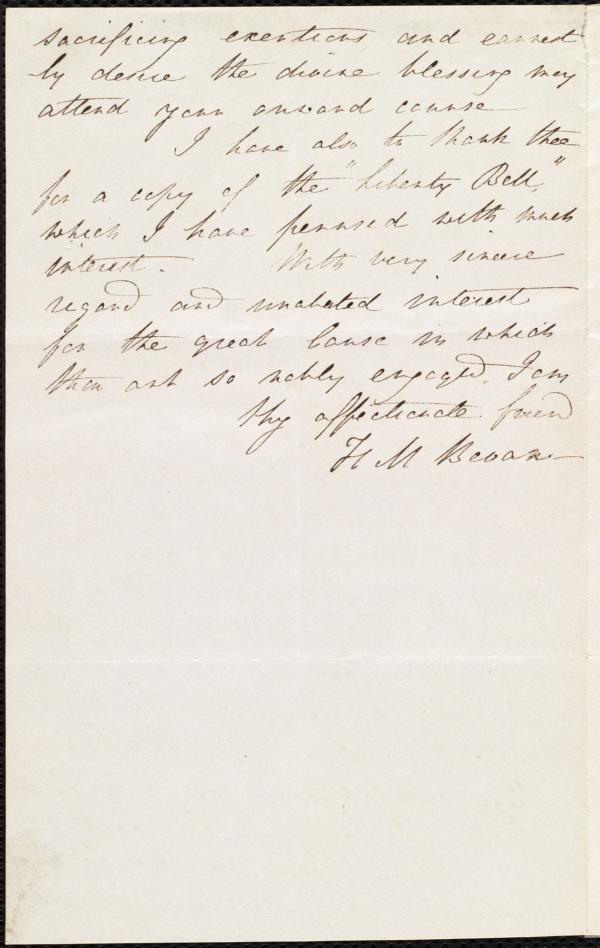 sacrificing exertions and earnest
-ly desire the divine blessing may
attend your onward course
I have also to thank thee
for a copy of the "Liberty Bell,"
which I have perused with much
interest. With very sincere
regard and unabated interest
for the great Cause in which
thou art so nobly engaged, I am
thy affectionate friend
H M Bevan